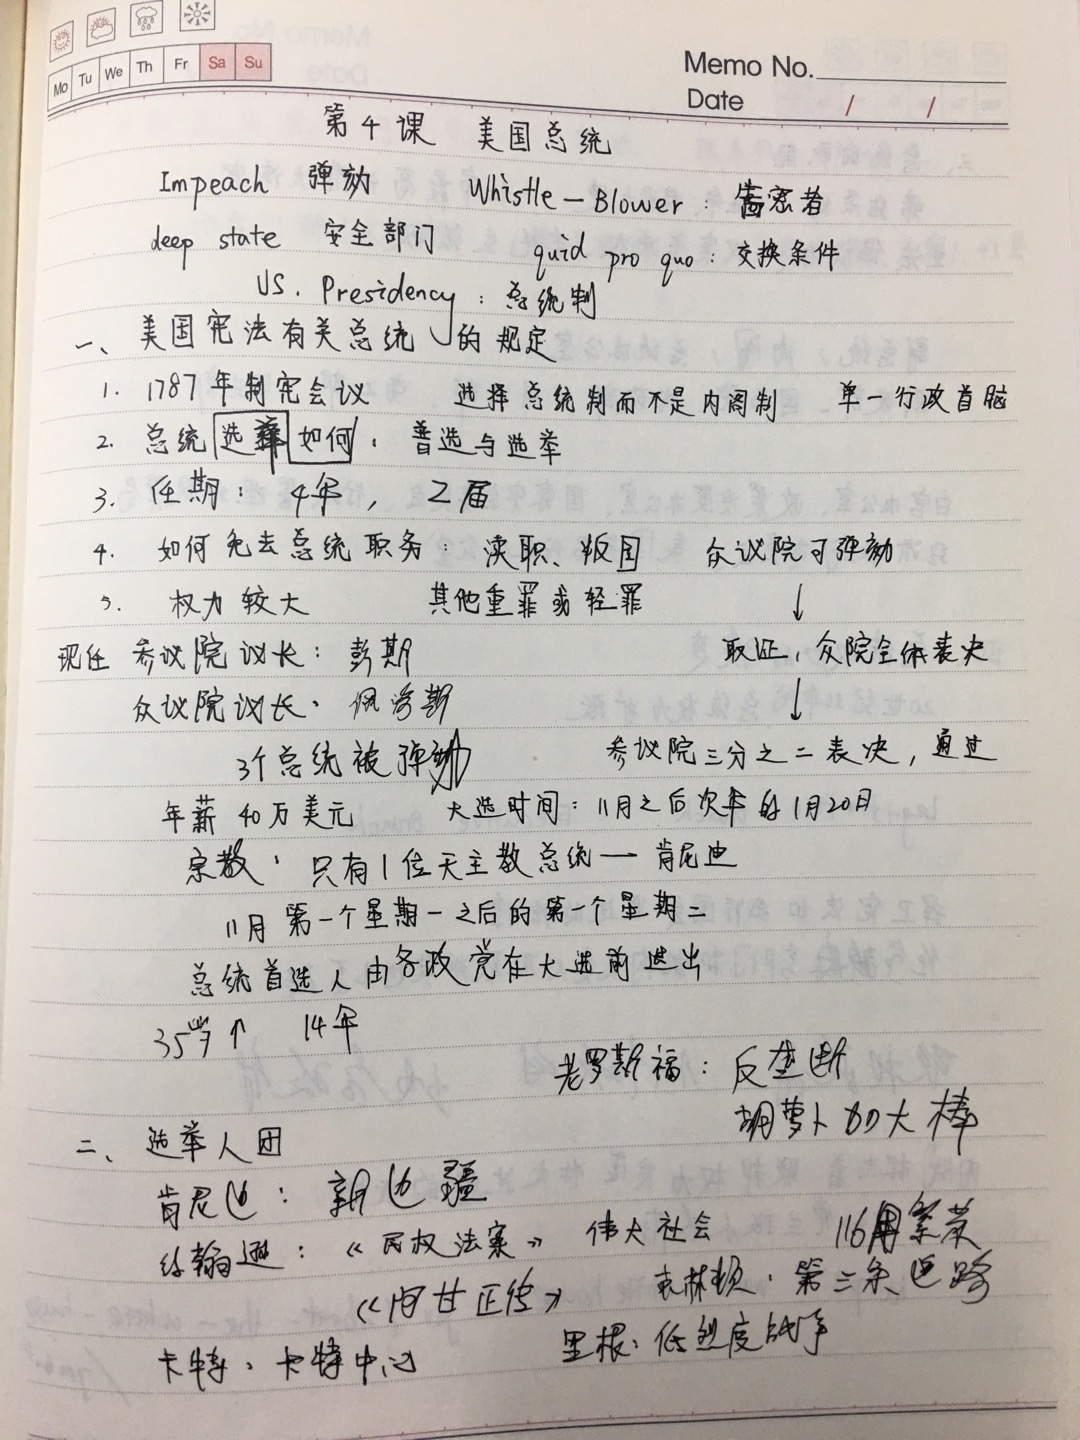 Mo Tu We Th Fr Sa Su
Memo No.
Date / /
第4课 美国总统
Impeach 弹劾 Whistle-Blower：告密者
deep state 安全部门 quid pro quo：交换条件
US. Presidency：总统制
一、美国宪法有关总统的规定
1. 1787年制宪会议 选择总统制而不是内阁制 单一行政首脑
2. 总统选举如何：普选与选举
3. 任期：4年，2届
4. 如何免去总统职务：渎职、叛国 众议院可弹劾
5. 权力较大 其他重罪或轻罪 ↓
现任 参议院议长：彭斯 取证，众院全体表决
众议院议长：佩洛斯 ↓
3个总统被弹劾 参议院三分之二表决，通过
年薪40万美元 大选时间：11月之后次年的1月20日
宗教：只有1位天主教总统—肯尼迪
11月第一个星期一之后的第一个星期二
总统首选人由各政党在大选前选出
35岁↑ 14年
老罗斯福：反垄断
胡萝卜加大棒
二、选举人团
肯尼迪：新边疆
约翰逊：《民权法案》 伟大社会 116月繁荣
《阿甘正传》 克林顿：第三条道路
卡特：卡特中心 里根：低烈度战争